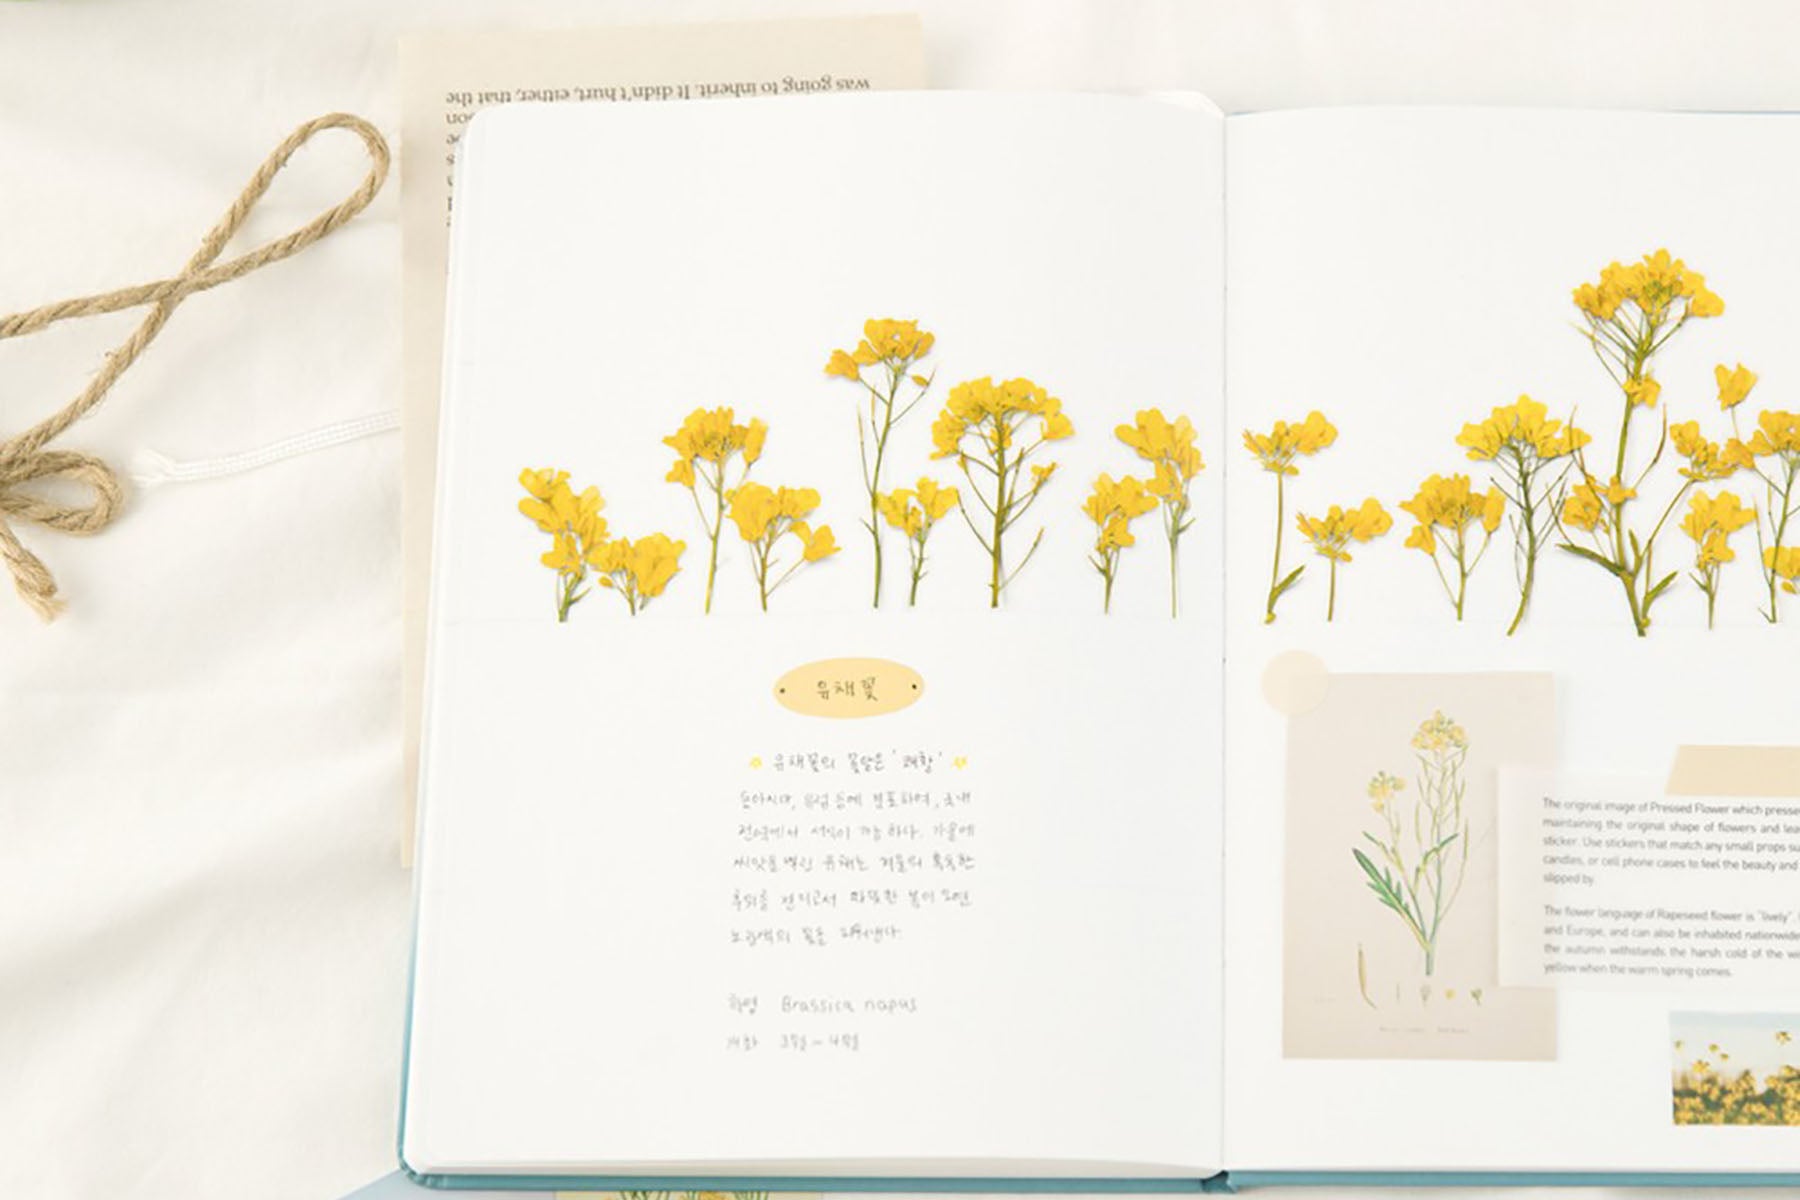 was going to inherit. It didn't hurt, either, that the
유채꽃
유채꽃의 꽃말은 '쾌활'
동아시아, 유럽 등에 분포하며, 국내
전역에서 서식이 가능하다. 가을에
씨앗을 뿌린 유채는 겨울의 혹독한
추위를 견디고서 따뜻한 봄이 오면
노란색의 꽃을 피워낸다.
학명 Brassica napus
개화 3월 - 4월
The original image of Pressed Flower which
maintaining the original shape of flowers and
sticker. Use stickers that match any small props
candles, or cell phone cases to feel the beauty and
slipped by.
The flower language of Rapeseed flower is "lively".
and Europe, and can also be inhabited nationwide
the autumn withstands the harsh cold of the
yellow when the warm spring comes.